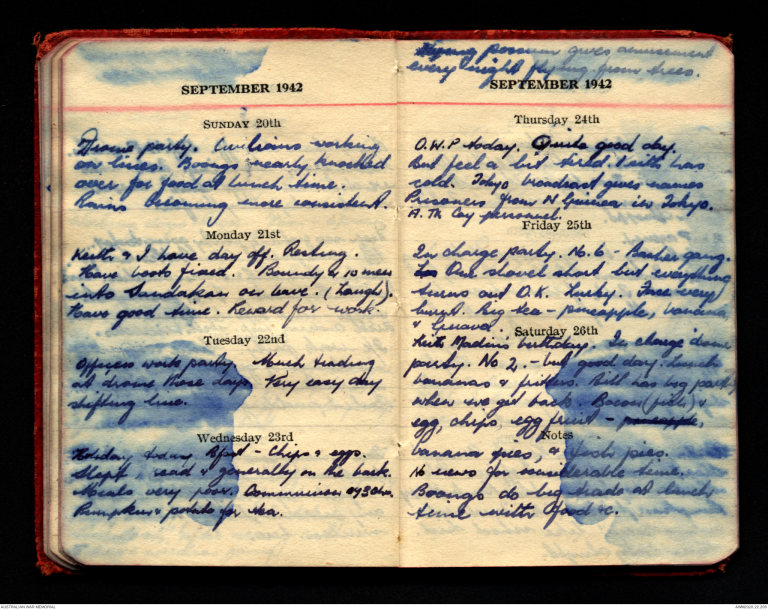 SEPTEMBER 1942
SUNDAY 20th
Drome party. Civilians working
on lines. Boongs nearly knocked
over for food at lunch time.
Rains becoming more consistent.
Monday 21st
Keith & I have day off. Resting.
Have boots fixed. Boundy & 10 men
into Sandakan on leave. (Laugh).
Have good time. Reward for work.
Tuesday 22nd
Officers work party. Much trading
at drome these days. Very easy day
shifting line.
Wednesday 23rd
Holiday today. Bfast - Chips & eggs.
Slept, read & generally on the back.
Meals very poor. Communion
Pumpkin & potato for tea.
Flying possum gives amusement
every night flying from trees.
SEPTEMBER 1942
Thursday 24th
O.W.P today. Quite good day.
But feel a bit tired. Keith has
cold. Tokyo broadcast gives names
Prisoners from N Guinea in Tokyo.
A. Th Coy personnel.
Friday 25th
In charge party. No. 6 - Basher gang.
One shovel short but everything
turns out O.K. Lucky. Face very
burnt. Big tea - pineapple, banana,
&
Saturday 26th
Keith Madin's birthday. In charge drome
party. No 2. - but good day. Lunch
bananas & fritters. Bill has big party
when we get back. Bacon (fish) &
egg, chips, egg fruit - pineapple,
Notes
banana pies, & fish pies.
No news for considerable time.
Boongs do big trade at lunch
time with food &c.
AUSTRALIAN WAR MEMORIAL